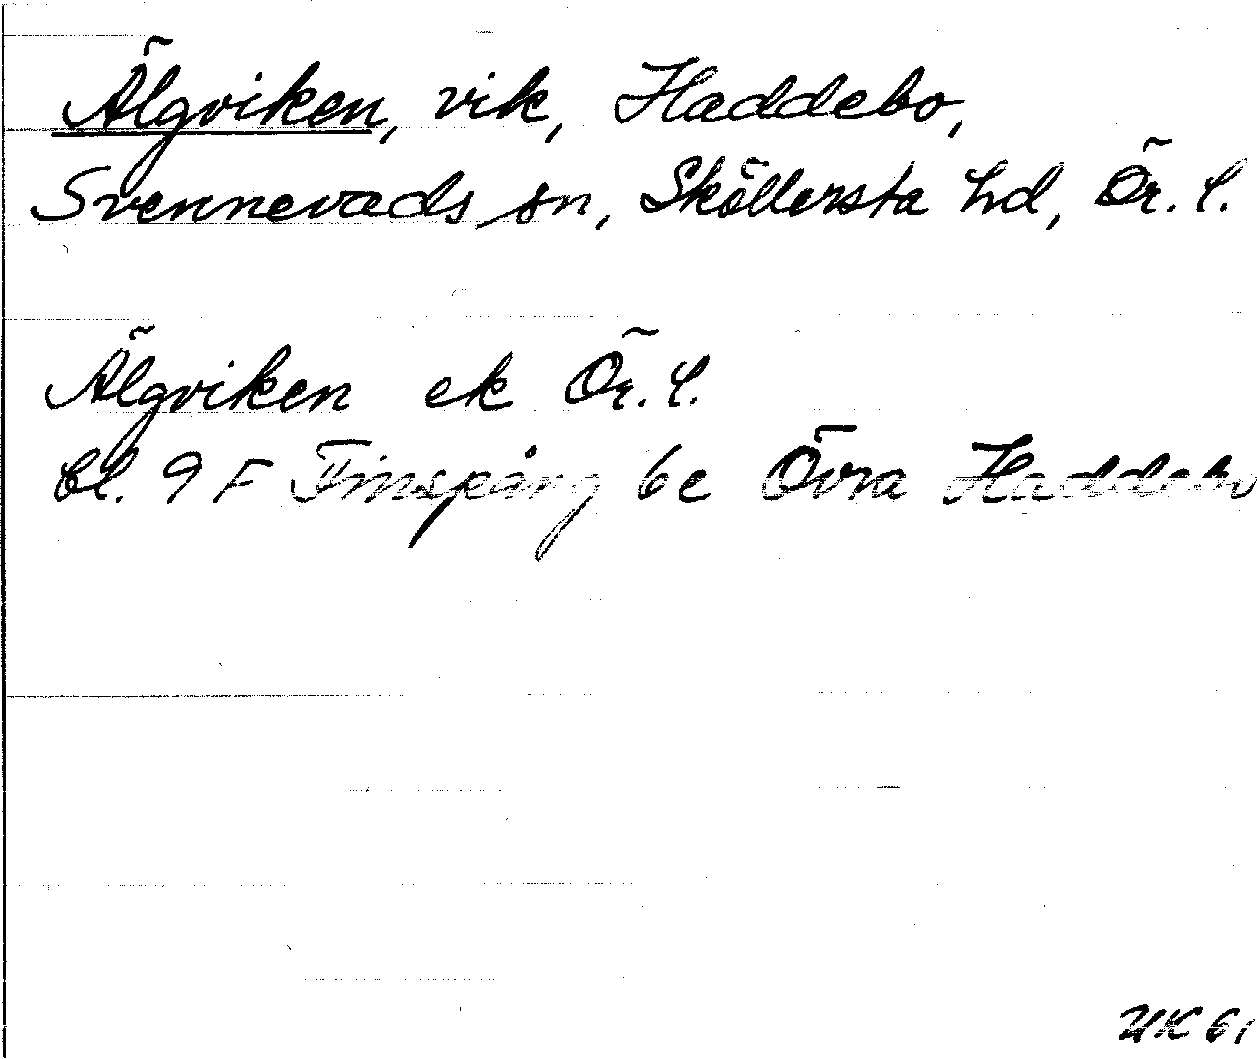 Älgviken, vik, Haddebo,
Svennevads sn, Sköllersta hd, Ör. l.
Älgviken ek Ör. l.
bl. 9 F Finspång 6 c Övra Haddebo
UK 61